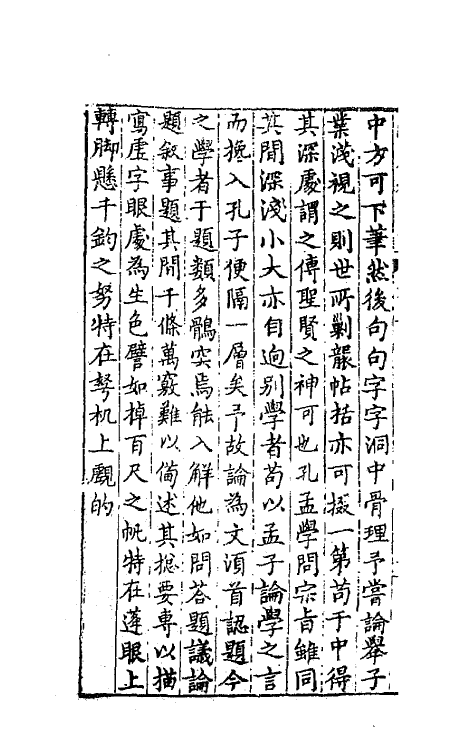 中方可下筆然後句句字字洞中骨理予嘗論舉子
業淺視之則世所剿襲帖括亦可掇一第苟于中得
其深處謂之傳聖賢之神可也孔孟學問宗旨雖同
其間深淺小大亦自逈别學者苟以孟子論學之言
而攙入孔子便隔一層矣予故論為文須首認題今
之學者于題類多鶻突焉能入解他如問答題議論
題叙事題其間千條萬竅難以備述其揔要專以描
寫虛字眼處為生色譬如掉百尺之帆特在蓬眼上
轉脚懸千鈞之弩特在弩机上覷的